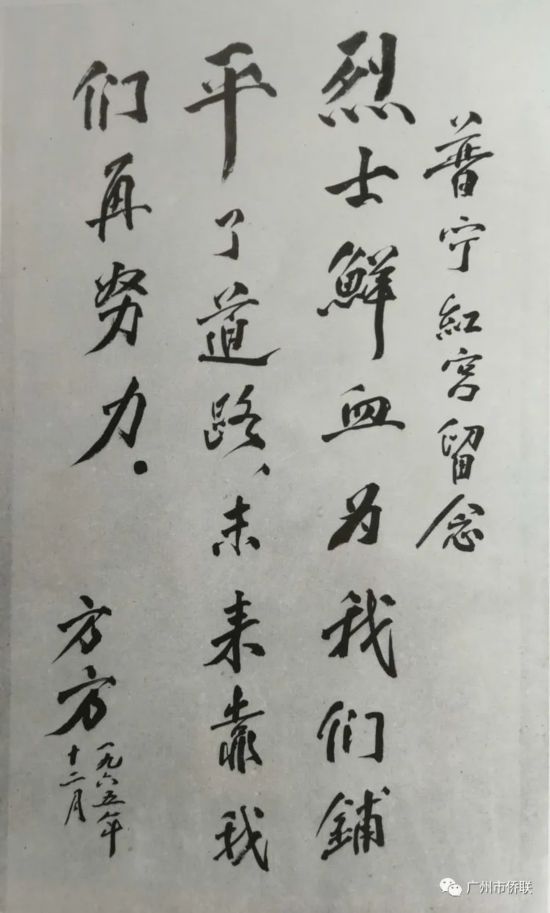 普宁红宫留念
烈士鲜血为我们鋪
平了道路、未来靠我
们再努力.
方方
一九六五年
十二月
广州市侨联